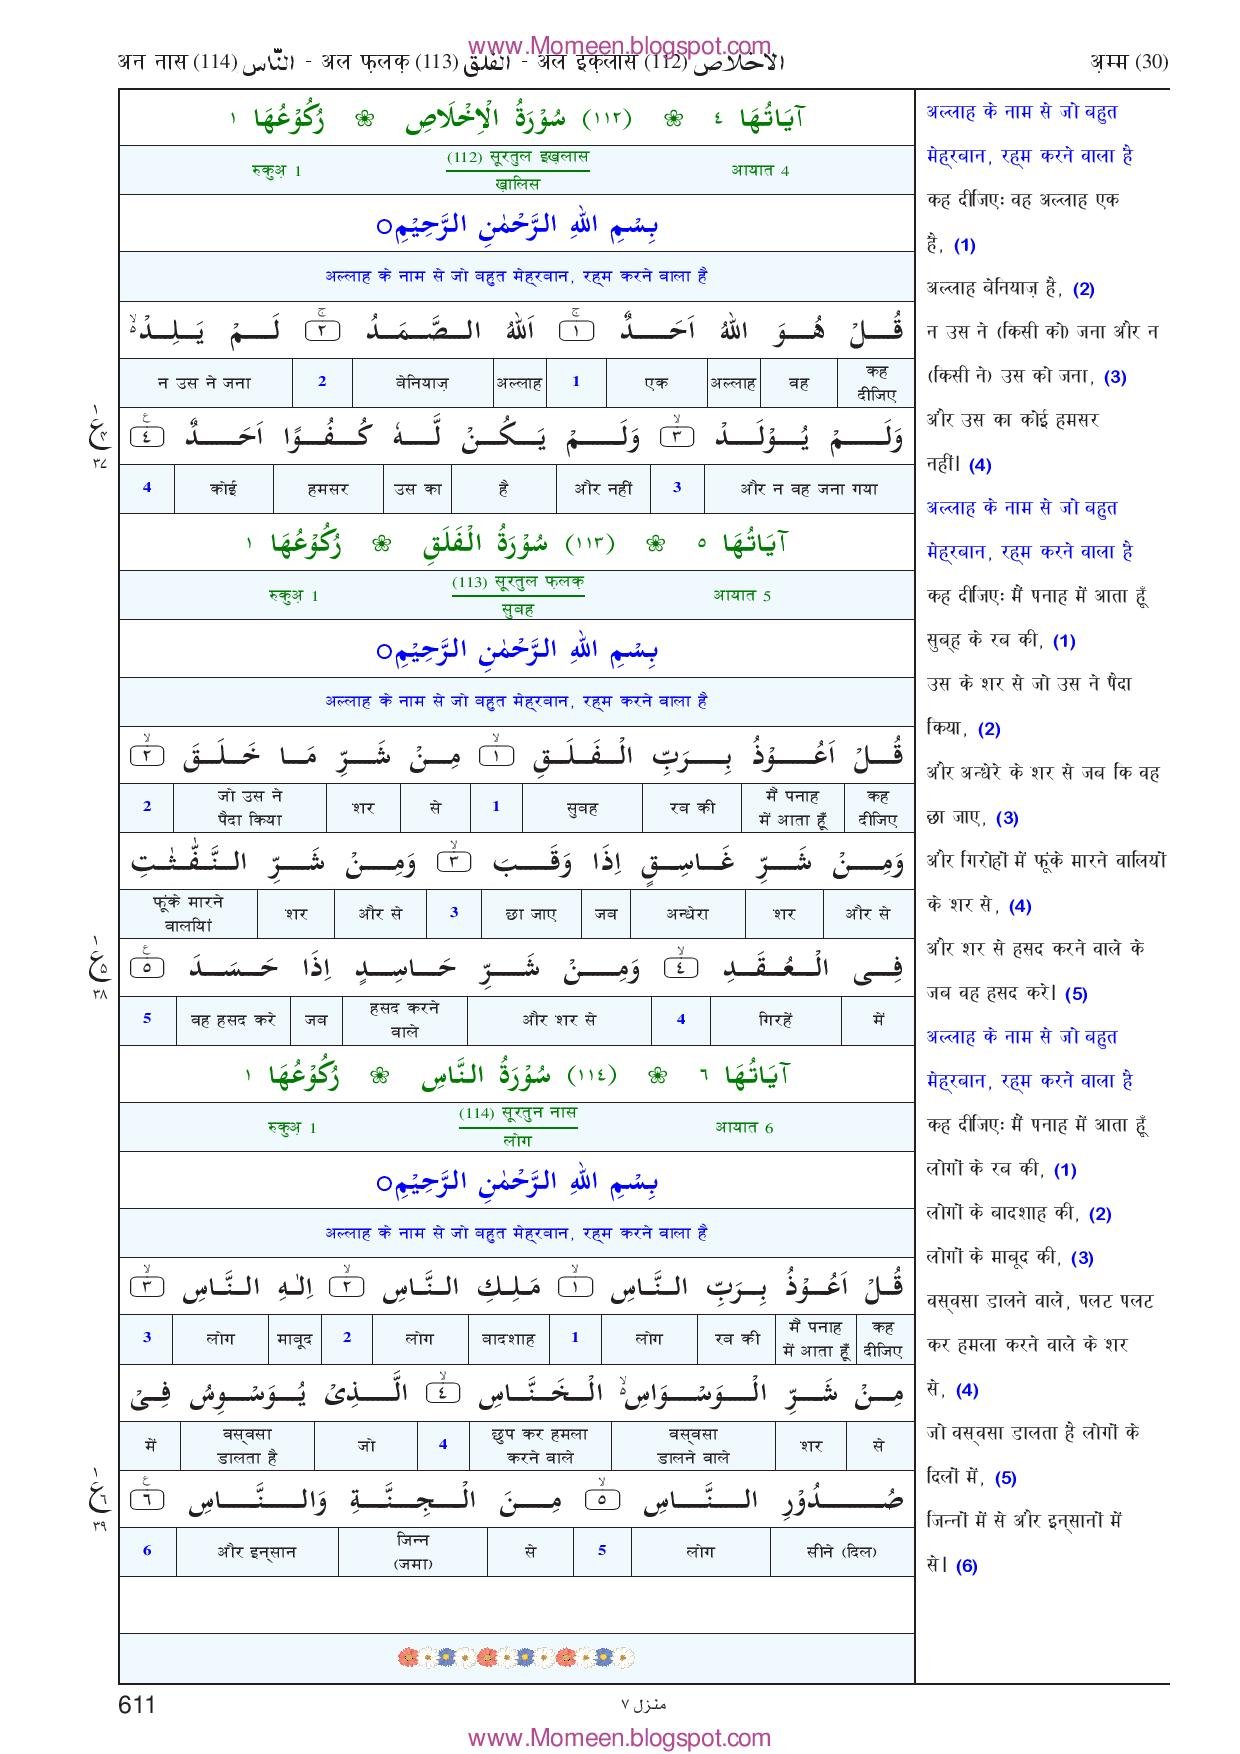 www.Momeen.blogspot.com
अन नास (114) النَّاس - अल फ़लक़ (113) الفلق - अल इक़्लास (112) الاخلاص
अ़म्म (30)
آيَاتُهَا ٤ ❀ (١١٢) سُوْرَةُ الْاِخْلَاصِ ❀ رُكُوْعُهَا ١
आयात 4
(112) सूरतुल इख़लास
ख़ालिस
रुकुअ़ 1
بِسْمِ اللهِ الرَّحْمٰنِ الرَّحِيْمِ○
अल्लाह के नाम से जो बहुत मेह्रबान, रह्म करने वाला है
قُلْ هُوَ اللهُ اَحَدٌ ۚ ١ اَللهُ الصَّمَدُ ۚ ٢ لَمْ يَلِدْ ۙ
कह दीजिए | वह | अल्लाह | एक | 1 | अल्लाह | बेनियाज़ | 2 | न उस ने जना
وَلَمْ يُوْلَدْ ۙ ٣ وَلَمْ يَكُنْ لَّهٗ كُفُوًا اَحَدٌ ٤
और न वह जना गया | 3 | और नहीं | है | उस का | हमसर | कोई | 4
١
ع
٤
٣٧
آيَاتُهَا ٥ ❀ (١١٣) سُوْرَةُ الْفَلَقِ ❀ رُكُوْعُهَا ١
आयात 5
(113) सूरतुल फ़लक़
सुबह
रुकुअ़ 1
بِسْمِ اللهِ الرَّحْمٰنِ الرَّحِيْمِ○
अल्लाह के नाम से जो बहुत मेह्रबान, रह्म करने वाला है
قُلْ اَعُوْذُ بِرَبِّ الْفَلَقِ ۙ ١ مِنْ شَرِّ مَا خَلَقَ ۙ ٢
कह दीजिए | मैं पनाह में आता हूँ | रब की | सुबह | 1 | से | शर | जो उस ने पैदा किया | 2
وَمِنْ شَرِّ غَاسِقٍ اِذَا وَقَبَ ۙ ٣ وَمِنْ شَرِّ النَّفّٰثٰتِ
और से | शर | अन्धेरा | जब | छा जाए | 3 | और से | शर | फूंके मारने वालयिां
فِى الْعُقَدِ ۙ ٤ وَمِنْ شَرِّ حَاسِدٍ اِذَا حَسَدَ ٥
में | गिरहें | 4 | और शर से | हसद करने वाले | जब | वह हसद करे | 5
١
ع
٥
٣٨
آيَاتُهَا ٦ ❀ (١١٤) سُوْرَةُ النَّاسِ ❀ رُكُوْعُهَا ١
आयात 6
(114) सूरतुन नास
लोग
रुकुअ़ 1
بِسْمِ اللهِ الرَّحْمٰنِ الرَّحِيْمِ○
अल्लाह के नाम से जो बहुत मेह्रबान, रह्म करने वाला है
قُلْ اَعُوْذُ بِرَبِّ النَّاسِ ۙ ١ مَلِكِ النَّاسِ ۙ ٢ اِلٰهِ النَّاسِ ۙ ٣
कह दीजिए | मैं पनाह में आता हूँ | रब की | लोग | 1 | बादशाह | लोग | 2 | माबूद | लोग | 3
مِنْ شَرِّ الْوَسْوَاسِ ۙ الْخَنَّاسِ ۙ ٤ الَّذِىْ يُوَسْوِسُ فِىْ
से | शर | वस्वसा डालने वाले | छुप कर हमला करने वाले | 4 | जो | वस्वसा डालता है | में
صُدُوْرِ النَّاسِ ۙ ٥ مِنَ الْجِنَّةِ وَالنَّاسِ ٦
सीने (दिल) | लोग | 5 | से | जिन्न (जमा) | और इन्सान | 6
١
ع
٦
٣٩
अल्लाह के नाम से जो बहुत
मेह्रबान, रह्म करने वाला है
कह दीजिएः वह अल्लाह एक
है, (1)
अल्लाह बेनियाज़ है, (2)
न उस ने (किसी को) जना और न
(किसी ने) उस को जना, (3)
और उस का कोई हमसर
नहीं। (4)
अल्लाह के नाम से जो बहुत
मेह्रबान, रह्म करने वाला है
कह दीजिएः मैं पनाह में आता हूँ
सुब्ह के रब की, (1)
उस के शर से जो उस ने पैदा
किया, (2)
और अन्धेरे के शर से जब कि वह
छा जाए, (3)
और गिरोहों में फूंके मारने वालियों
के शर से, (4)
और शर से हसद करने वाले के
जब वह हसद करे। (5)
अल्लाह के नाम से जो बहुत
मेह्रबान, रह्म करने वाला है
कह दीजिएः मैं पनाह में आता हूँ
लोगों के रब की, (1)
लोगों के बादशाह की, (2)
लोगों के माबूद की, (3)
वस्वसा डालने वाले, पलट पलट
कर हमला करने वाले के शर
से, (4)
जो वस्वसा डालता है लोगों के
दिलों में, (5)
जिन्नों में से और इन्सानों में
से। (6)
611
منزل ٧
www.Momeen.blogspot.com